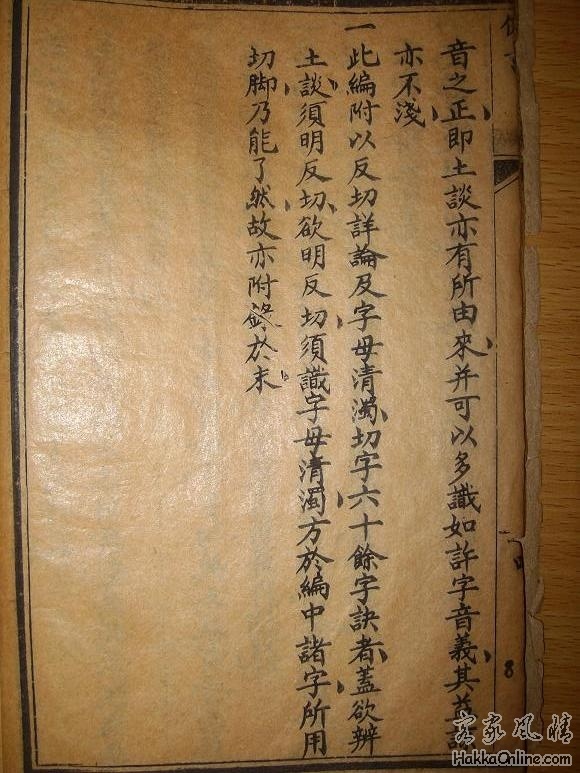 音之正即土談亦有所由來并可以多識如許字音義其益誠
亦不淺
一此編附以反切詳論及字母清濁切字六十餘字訣者蓋欲辨
土談須明反切欲明反切須識字母清濁方於編中諸字所用
切脚乃能了然故亦附錄於末
8
客家風情
HakkaOnline.com